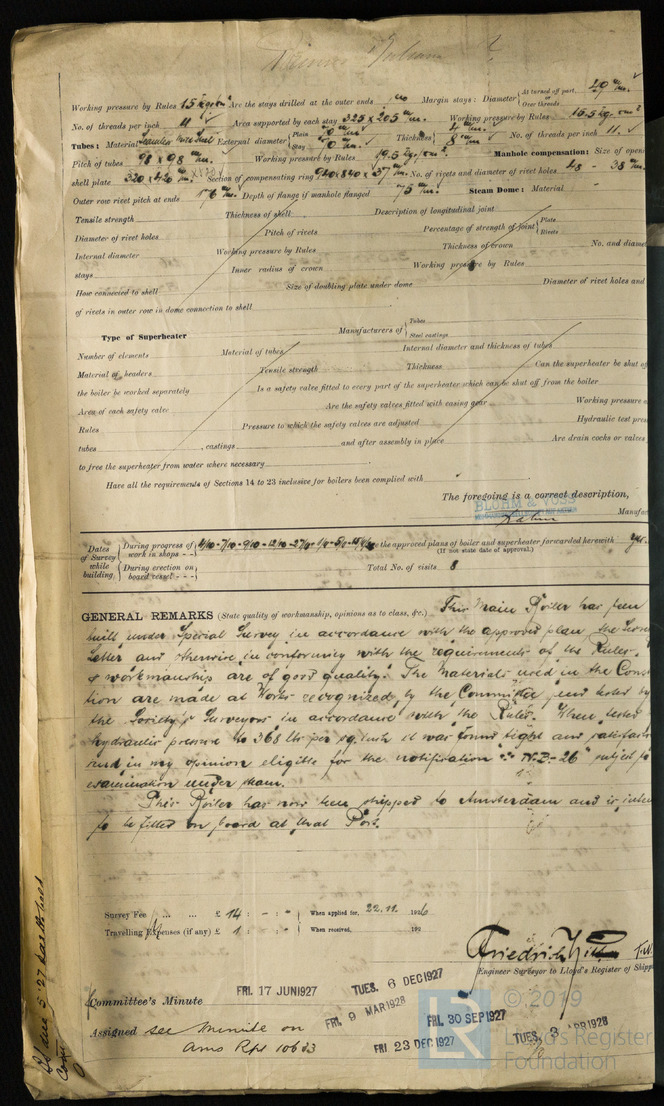 Working pressure by Rules 15 kg/cm² Are the stays drilled at the outer ends no Margin stays: Diameter { At turned off part, 40 m/m. Over threads
No. of threads per inch 11 Area supported by each stay 325 x 205 m/m. Working pressure by Rules 15.5 kg. cm²
Tubes: Material External diameter { Plain 70 m/m. Stay 70 m/m. Thickness { 4 m/m. 8 m/m. No. of threads per inch 11.
Pitch of tubes 98 x 98 m/m. Working pressure by Rules 19.5 kg./cm². Manhole compensation: Size of opening
shell plate 320 x 420 m/m. Section of compensating ring 940 x 840 x 37 m/m. No. of rivets and diameter of rivet holes 48 - 38 m/m.
Outer row rivet pitch at ends 176 m/m. Depth of flange if manhole flanged 75 m/m. Steam Dome: Material
Tensile strength Thickness of shell Description of longitudinal joint
Diameter of rivet holes Pitch of rivets Percentage of strength of joint { Plate Rivets
Internal diameter Working pressure by Rules Thickness of crown No. and diame
stays Inner radius of crown Working pressure by Rules
How connected to shell Size of doubling plate under dome Diameter of rivet holes and
of rivets in outer row in dome connection to shell
Type of Superheater Manufacturers of { Tubes Steel castings
Number of elements Material of tubes Internal diameter and thickness of tubes
Material of headers Tensile strength Thickness Can the superheater be shut of
the boiler be worked separately Is a safety valve fitted to every part of the superheater which can be shut off from the boiler
Area of each safety valve Are the safety valves fitted with easing gear Working pressure a
Rules Pressure to which the safety valves are adjusted Hydraulic test pres
tubes , castings and after assembly in place Are drain cocks or valves
to free the superheater from water where necessary
Have all the requirements of Sections 14 to 23 inclusive for boilers been complied with
The foregoing is a correct description,
BLOHM & VOSS
Manufac
Dates of Survey while building { During progress of work in shops - - Are the approved plans of boiler and superheater forwarded herewith yes.
(If not state date of approval.)
During erection on board vessel - - - Total No. of visits 8
GENERAL REMARKS (State quality of workmanship, opinions as to class, &c.) This Main Boiler has been
built under Special Survey in accordance with the approved plan, the
Letter and otherwise in conformity with the requirements of the Rules.
& workmanship are of good quality. The Materials used in the Con
tion are made at Works recognized by the Committee and tested by
the Society's Surveyors in accordance with the Rules. When tested
hydraulic pressure to 368 lbs per sq. inch it was found tight and satisfact
and in my opinion eligible for the notification "N.B-26" subject to
examination under steam.
This Boiler has now been shipped to Amsterdam and is inten
to be fitted on board at that Port.
Survey Fee ... ... £ 14 : - : - When applied for, 22.11. 1926
Travelling Expenses (if any) £ 1 : - : - When received, 192
Friedrich
Engineer Surveyor to Lloyd's Register of Shipp
Committee's Minute FRI. 17 JUN 1927 TUES. 6 DEC 1927
FRI. 9 MAR 1928 FRI. 30 SEP 1927
Assigned see minute on
Ams Rpt 10633 FRI 23 DEC 1927 TUES. 3 APR 1928
© 2019
Lloyd's Register
Foundation